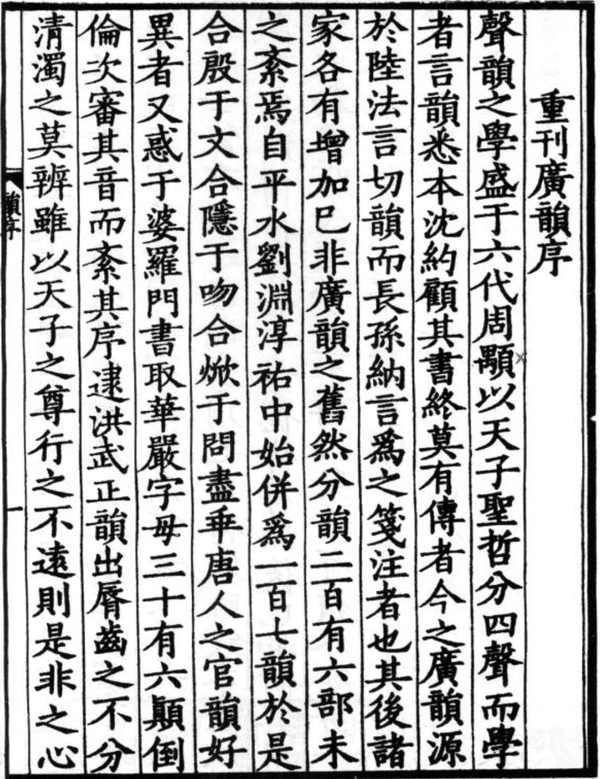 重刊廣韻序
聲韻之學盛于六代周顒以天子聖哲分四聲而學
者言韻悉本沈約顧其書終莫有傳者今之廣韻源
於陸法言切韻而長孫納言爲之箋注者也其後諸
家各有增加已非廣韻之舊然分韻二百有六部未
之紊焉自平水劉淵淳祐中始併爲一百七韻於是
合殷于文合隱于吻合焮于問盡乖唐人之官韻好
異者又惑于婆羅門書取華嚴字母三十有六顛倒
倫次審其音而紊其序逮洪武正韻出脣齒之不分
清濁之莫辨雖以天子之尊行之不遠則是非之心
韻序
一